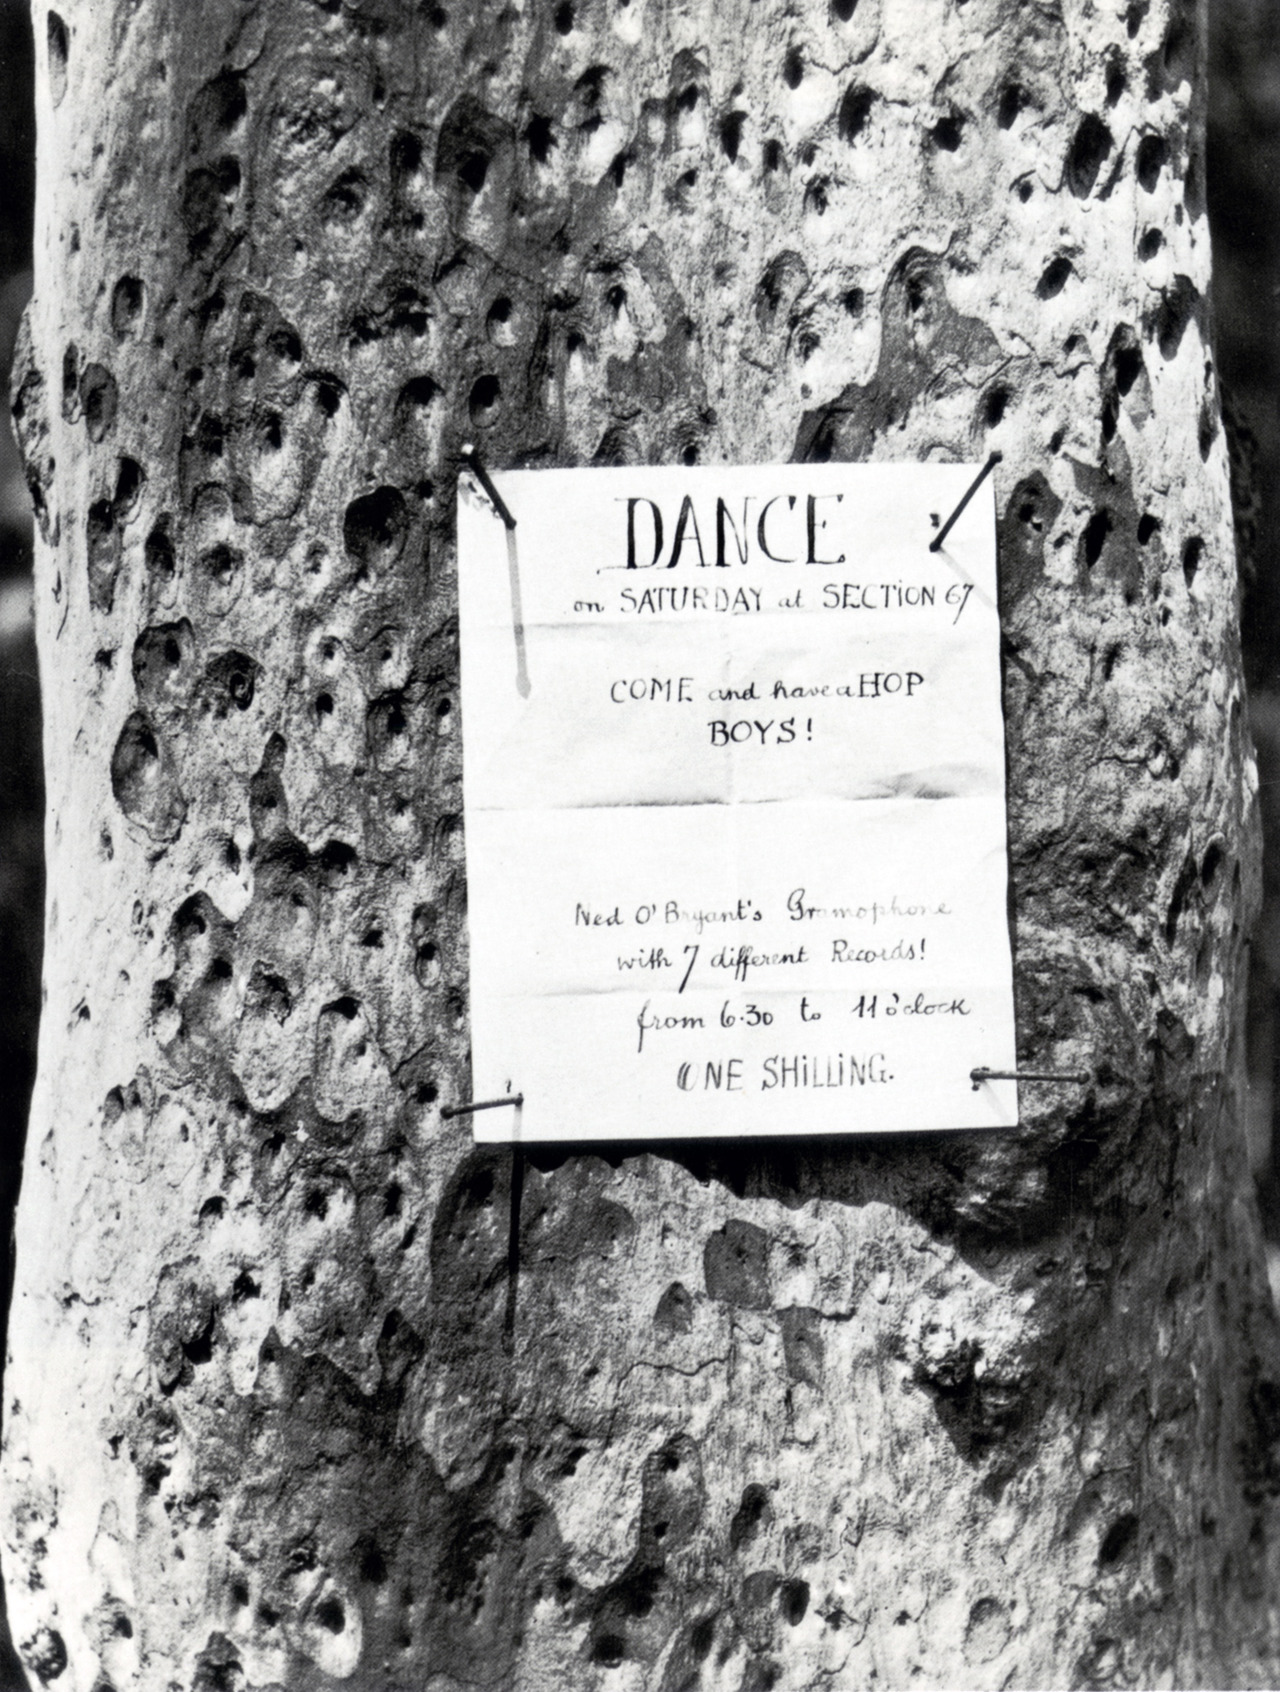 DANCE
on SATURDAY at SECTION 67
COME and have a HOP
BOYS!
Ned O'Bryant's Gramophone
with 7 different Records!
from 6.30 to 11 o'clock
ONE SHILLING.